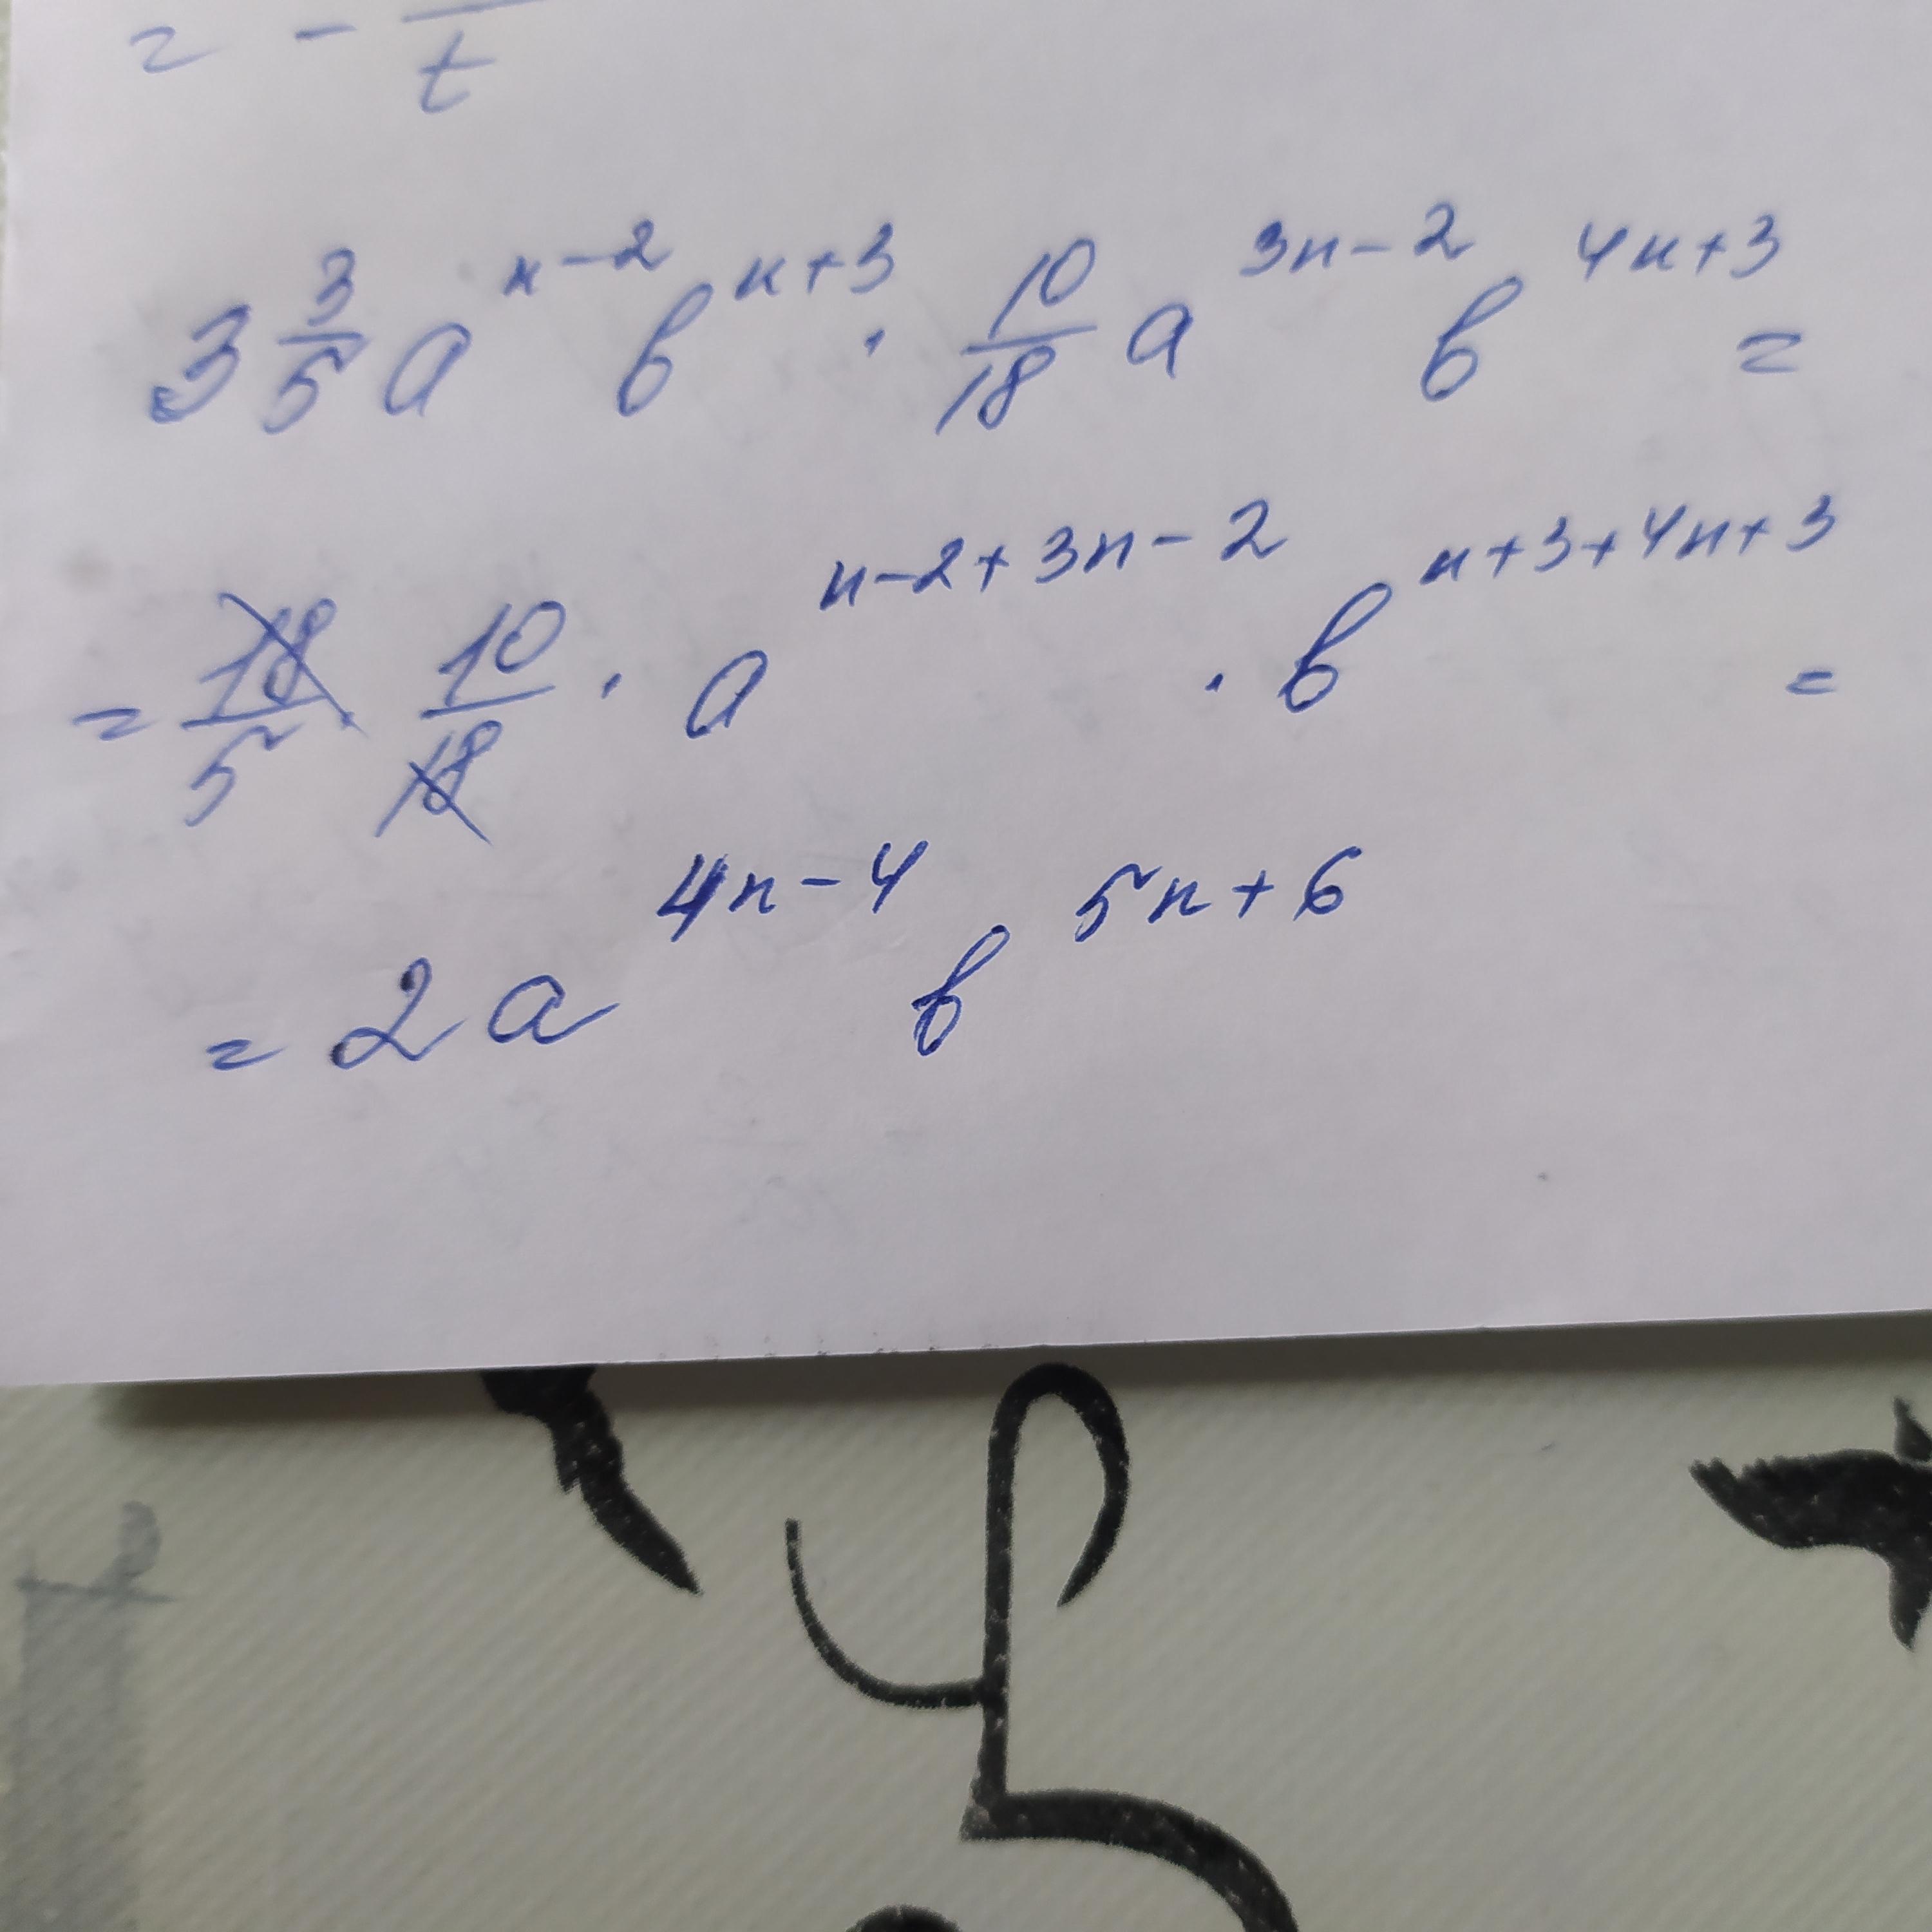 = - — t
3 3/5 a^(n-2) b^(n+3) · 10/18 a^(3n-2) b^(4n+3) =
= 18/5 · 10/18 · a^(n-2+3n-2) · b^(n+3+4n+3) =
= 2a^(4n-4) b^(5n+6)